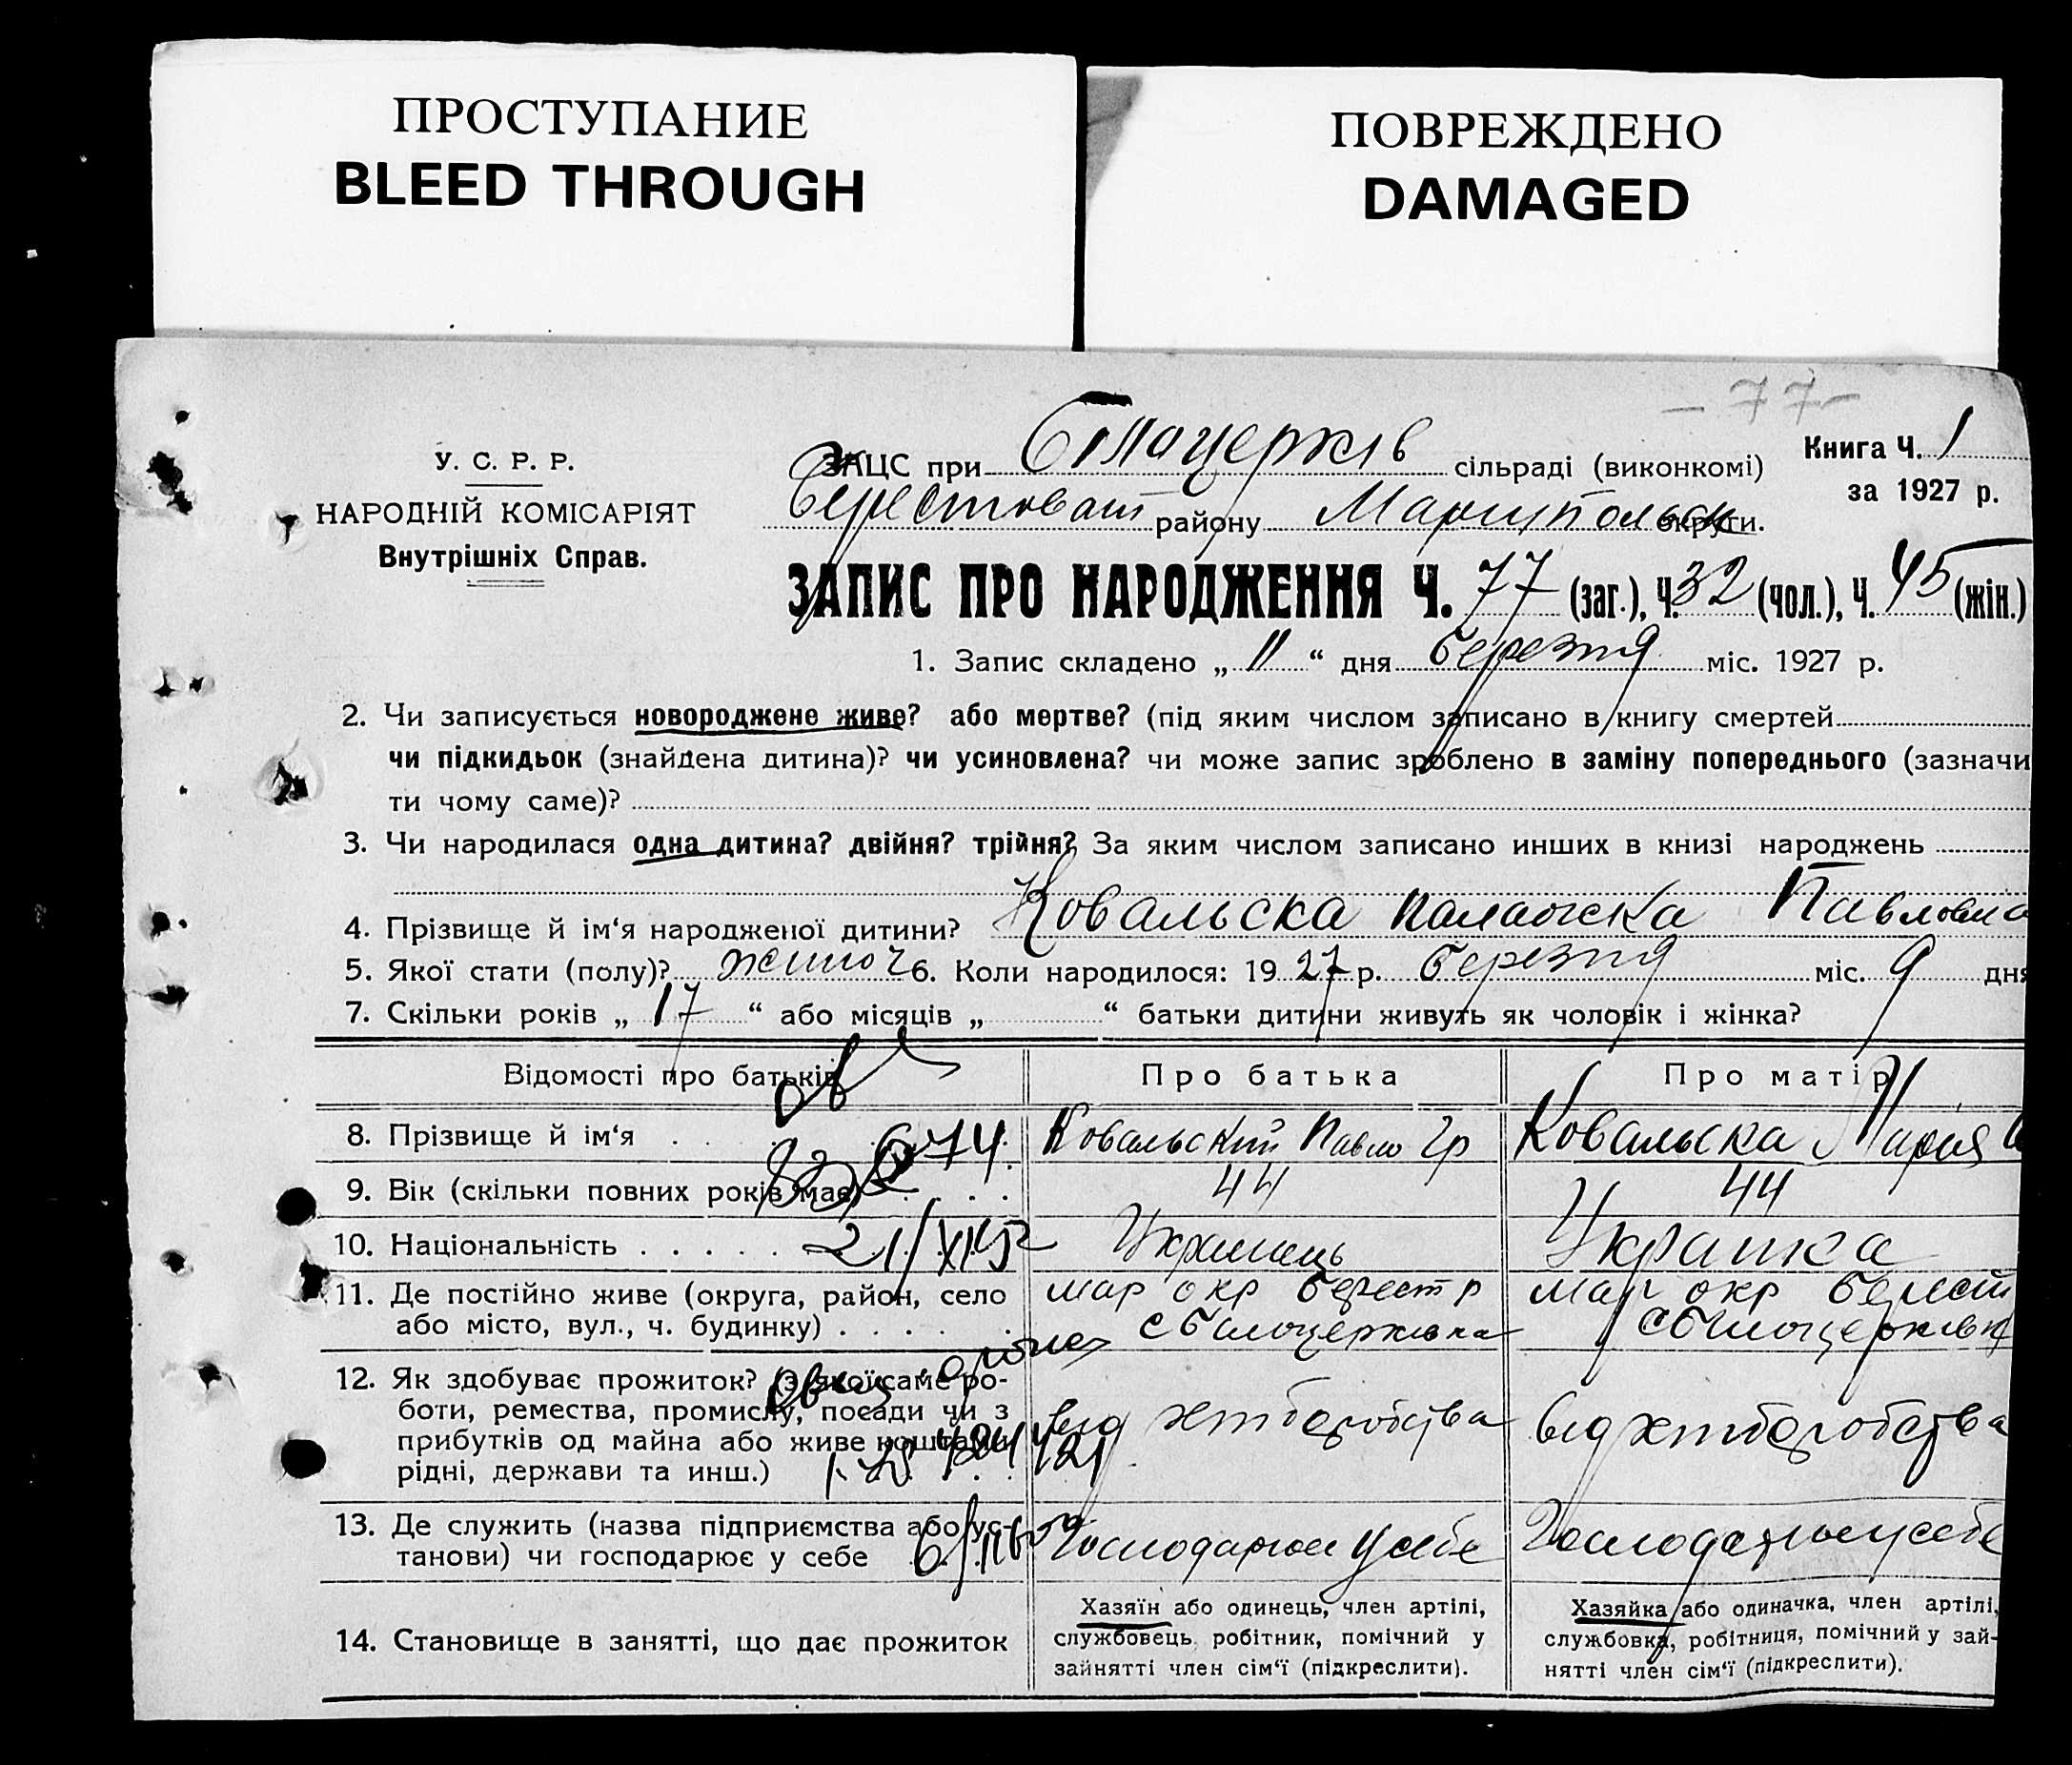 ПРОСТУПАНИЕ
BLEED THROUGH
ПОВРЕЖДЕНО
DAMAGED
- 77 -
У. С. Р. Р.
НАРОДНІЙ КОМІСАРІЯТ
Внутрішніх Справ.
ЗАЦС при Білоцерків сільраді (виконкомі)
Книга Ч. 1
за 1927 р.
Берестоват району Маріупольськ округи.
ЗАПИС ПРО НАРОДЖЕННЯ Ч. 77 (заг.), Ч. 32 (чол.), Ч. 45 (жін.)
1. Запис складено „ 11 “ дня березня міс. 1927 р.
2. Чи записується новороджене живе? або мертве? (під яким числом записано в книгу смертей
чи підкидьок (знайдена дитина)? чи усиновлена? чи може запис зроблено в заміну попереднього (зазначи
ти чому саме)?
3. Чи народилася одна дитина? двійня? трійня? За яким числом записано инших в книзі народжень
4. Прізвище й ім‘я народженої дитини? Ковальска Палажка Павловна
5. Якої стати (полу)? жіноч 6. Коли народилося: 1927 р. березня міс. 9 дня
7. Скільки років „ 17 “ або місяців „ “ батьки дитини живуть як чоловік і жінка?
Відомості про батьків
Про батька
Про матір
8. Прізвище й ім‘я
Ковальский Павло Гр
Ковальска Мария
9. Вік (скільки повних років має)
44
44
10. Національність
21/XI 52
Українець
Українка
11. Де постійно живе (округа, район, село
або місто, вул., ч. будинку)
мар окр берест р
с Білоцерківка
мар окр берест
с Білоцерківк
12. Як здобуває прожиток? (з якої саме ро-
боти, ремества, промислу, посади чи з
прибутків од майна або живе коштами
рідні, держави та инш.)
від хліборобства
від хліборобства
13. Де служить (назва підприємства або ус-
танови) чи господарює у себе
Господарює у себе
Господарює у себе
14. Становище в занятті, що дає прожиток
Хазяїн або одинець, член артілі,
службовець, робітник, помічний у
зайнятті член сім‘ї (підкреслити).
Хазяйка або одиначка, член артілі,
службовка, робітниця, помічний у зай-
нятті член сім‘ї (підкреслити).